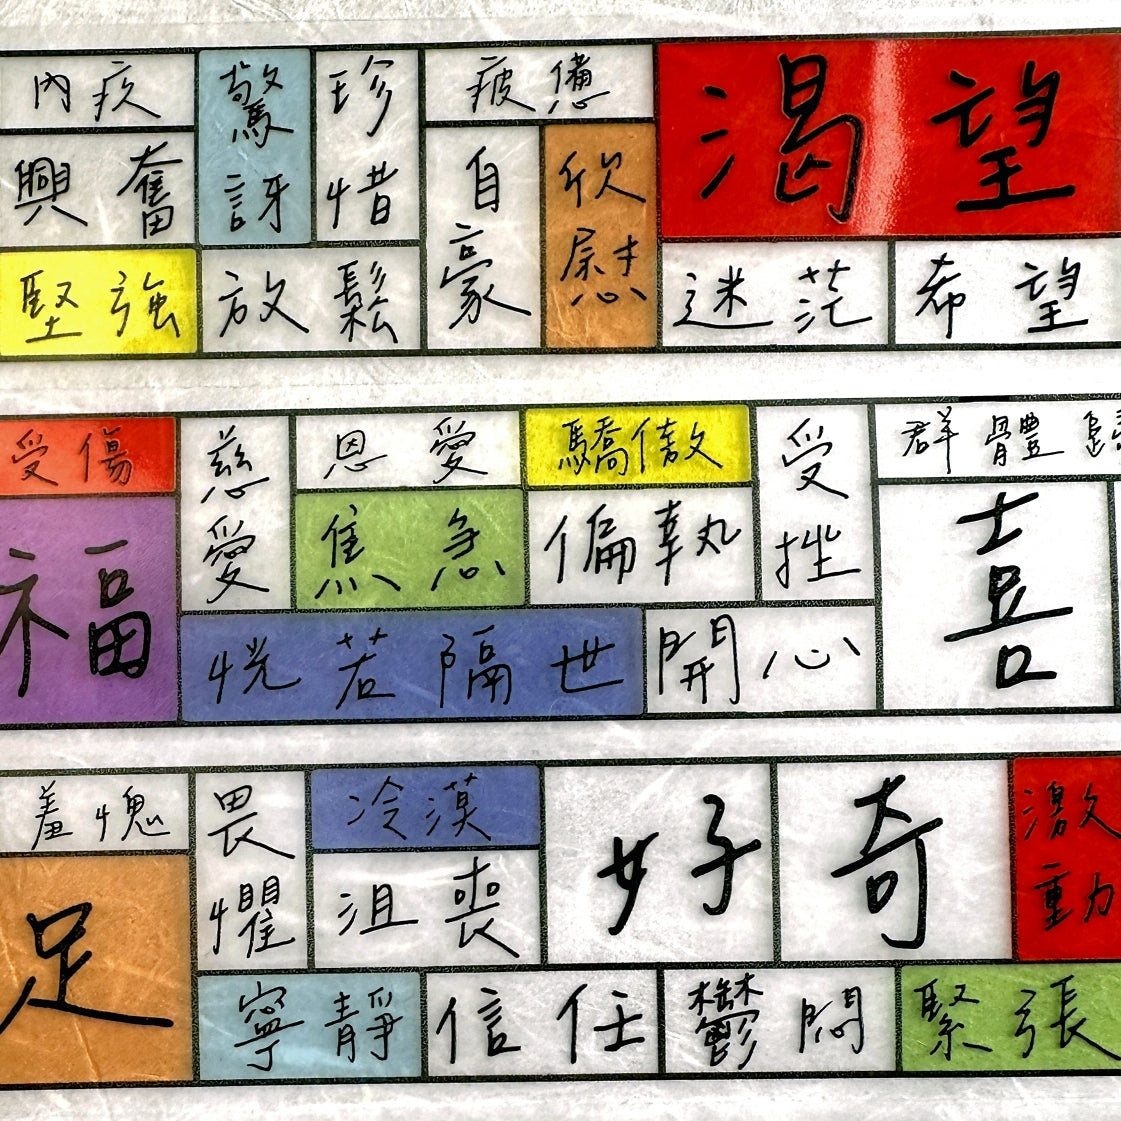 內疚
驚訝
珍惜
疲憊
渴望
興奮
自豪
欣慰
堅強
放鬆
迷茫
希望
受傷
慈愛
恩愛
驕傲
受挫
群體歸
福
焦急
偏執
喜
恍若隔世
開心
羞愧
畏懼
冷漠
好奇
激動
足
沮喪
寧靜
信任
鬱悶
緊張